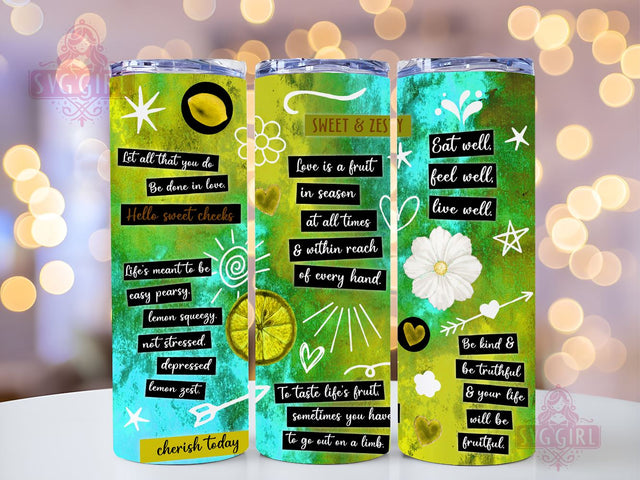 SVG GIRL
Let all that you do
Be done in love.
Hello sweet cheeks
Life's meant to be
easy pearsy,
lemon squeezy,
not stressed,
depressed
lemon zest.
cherish today
SWEET & ZESTY
Love is a fruit
in season
at all times
& within reach
of every hand.
To taste life's fruit,
sometimes you have
to go out on a limb.
Eat well,
feel well,
live well.
Be kind &
be truthful
& your life
will be
fruitful.
SVG GIRL
SVG GIRL